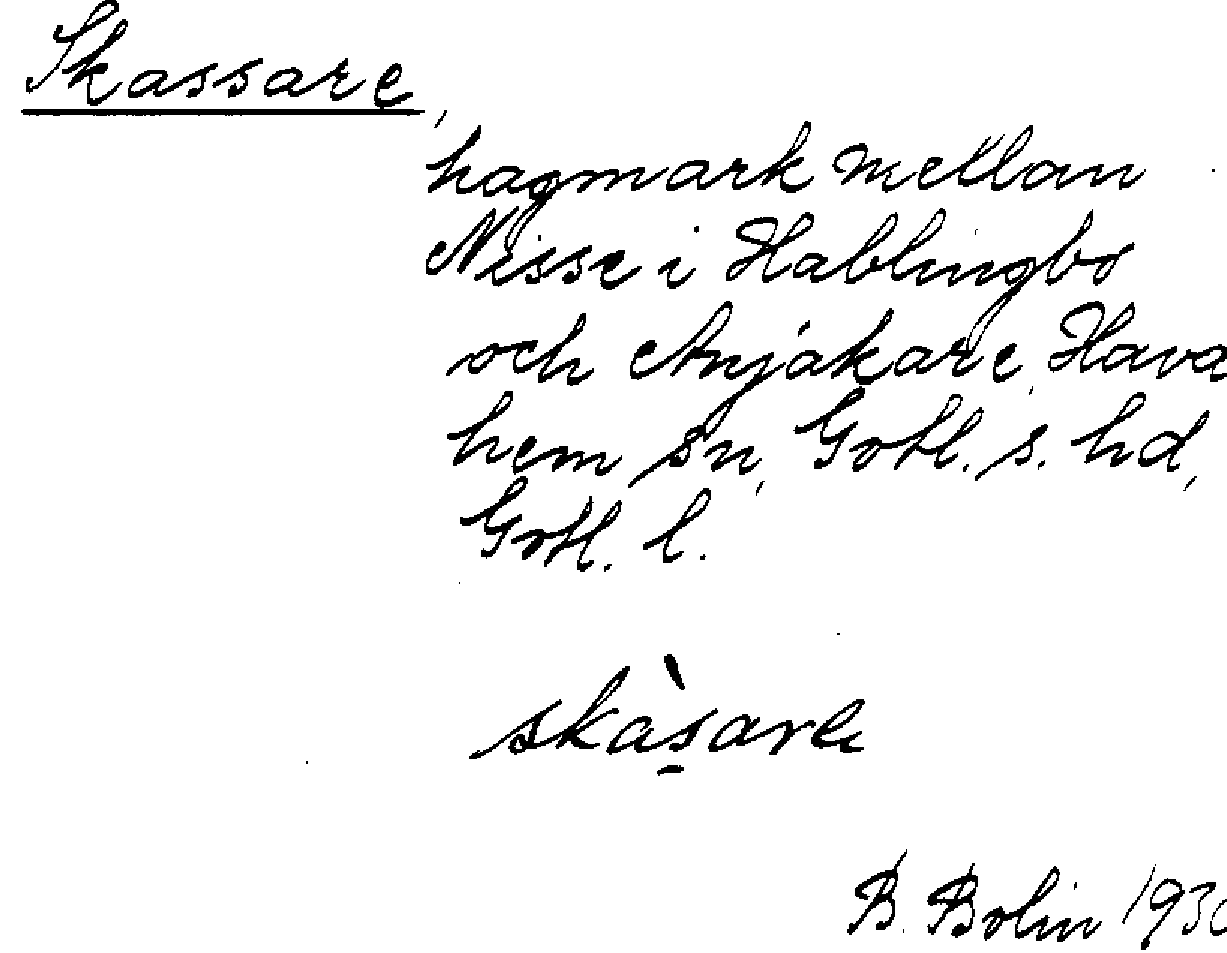 Skassare,
hagmark mellan
Nisse i Hablingbo
och Anjakare, Hava
hem sn, Gotl. s. hd,
Gotl. l.
skàsare
B. Bolin 193